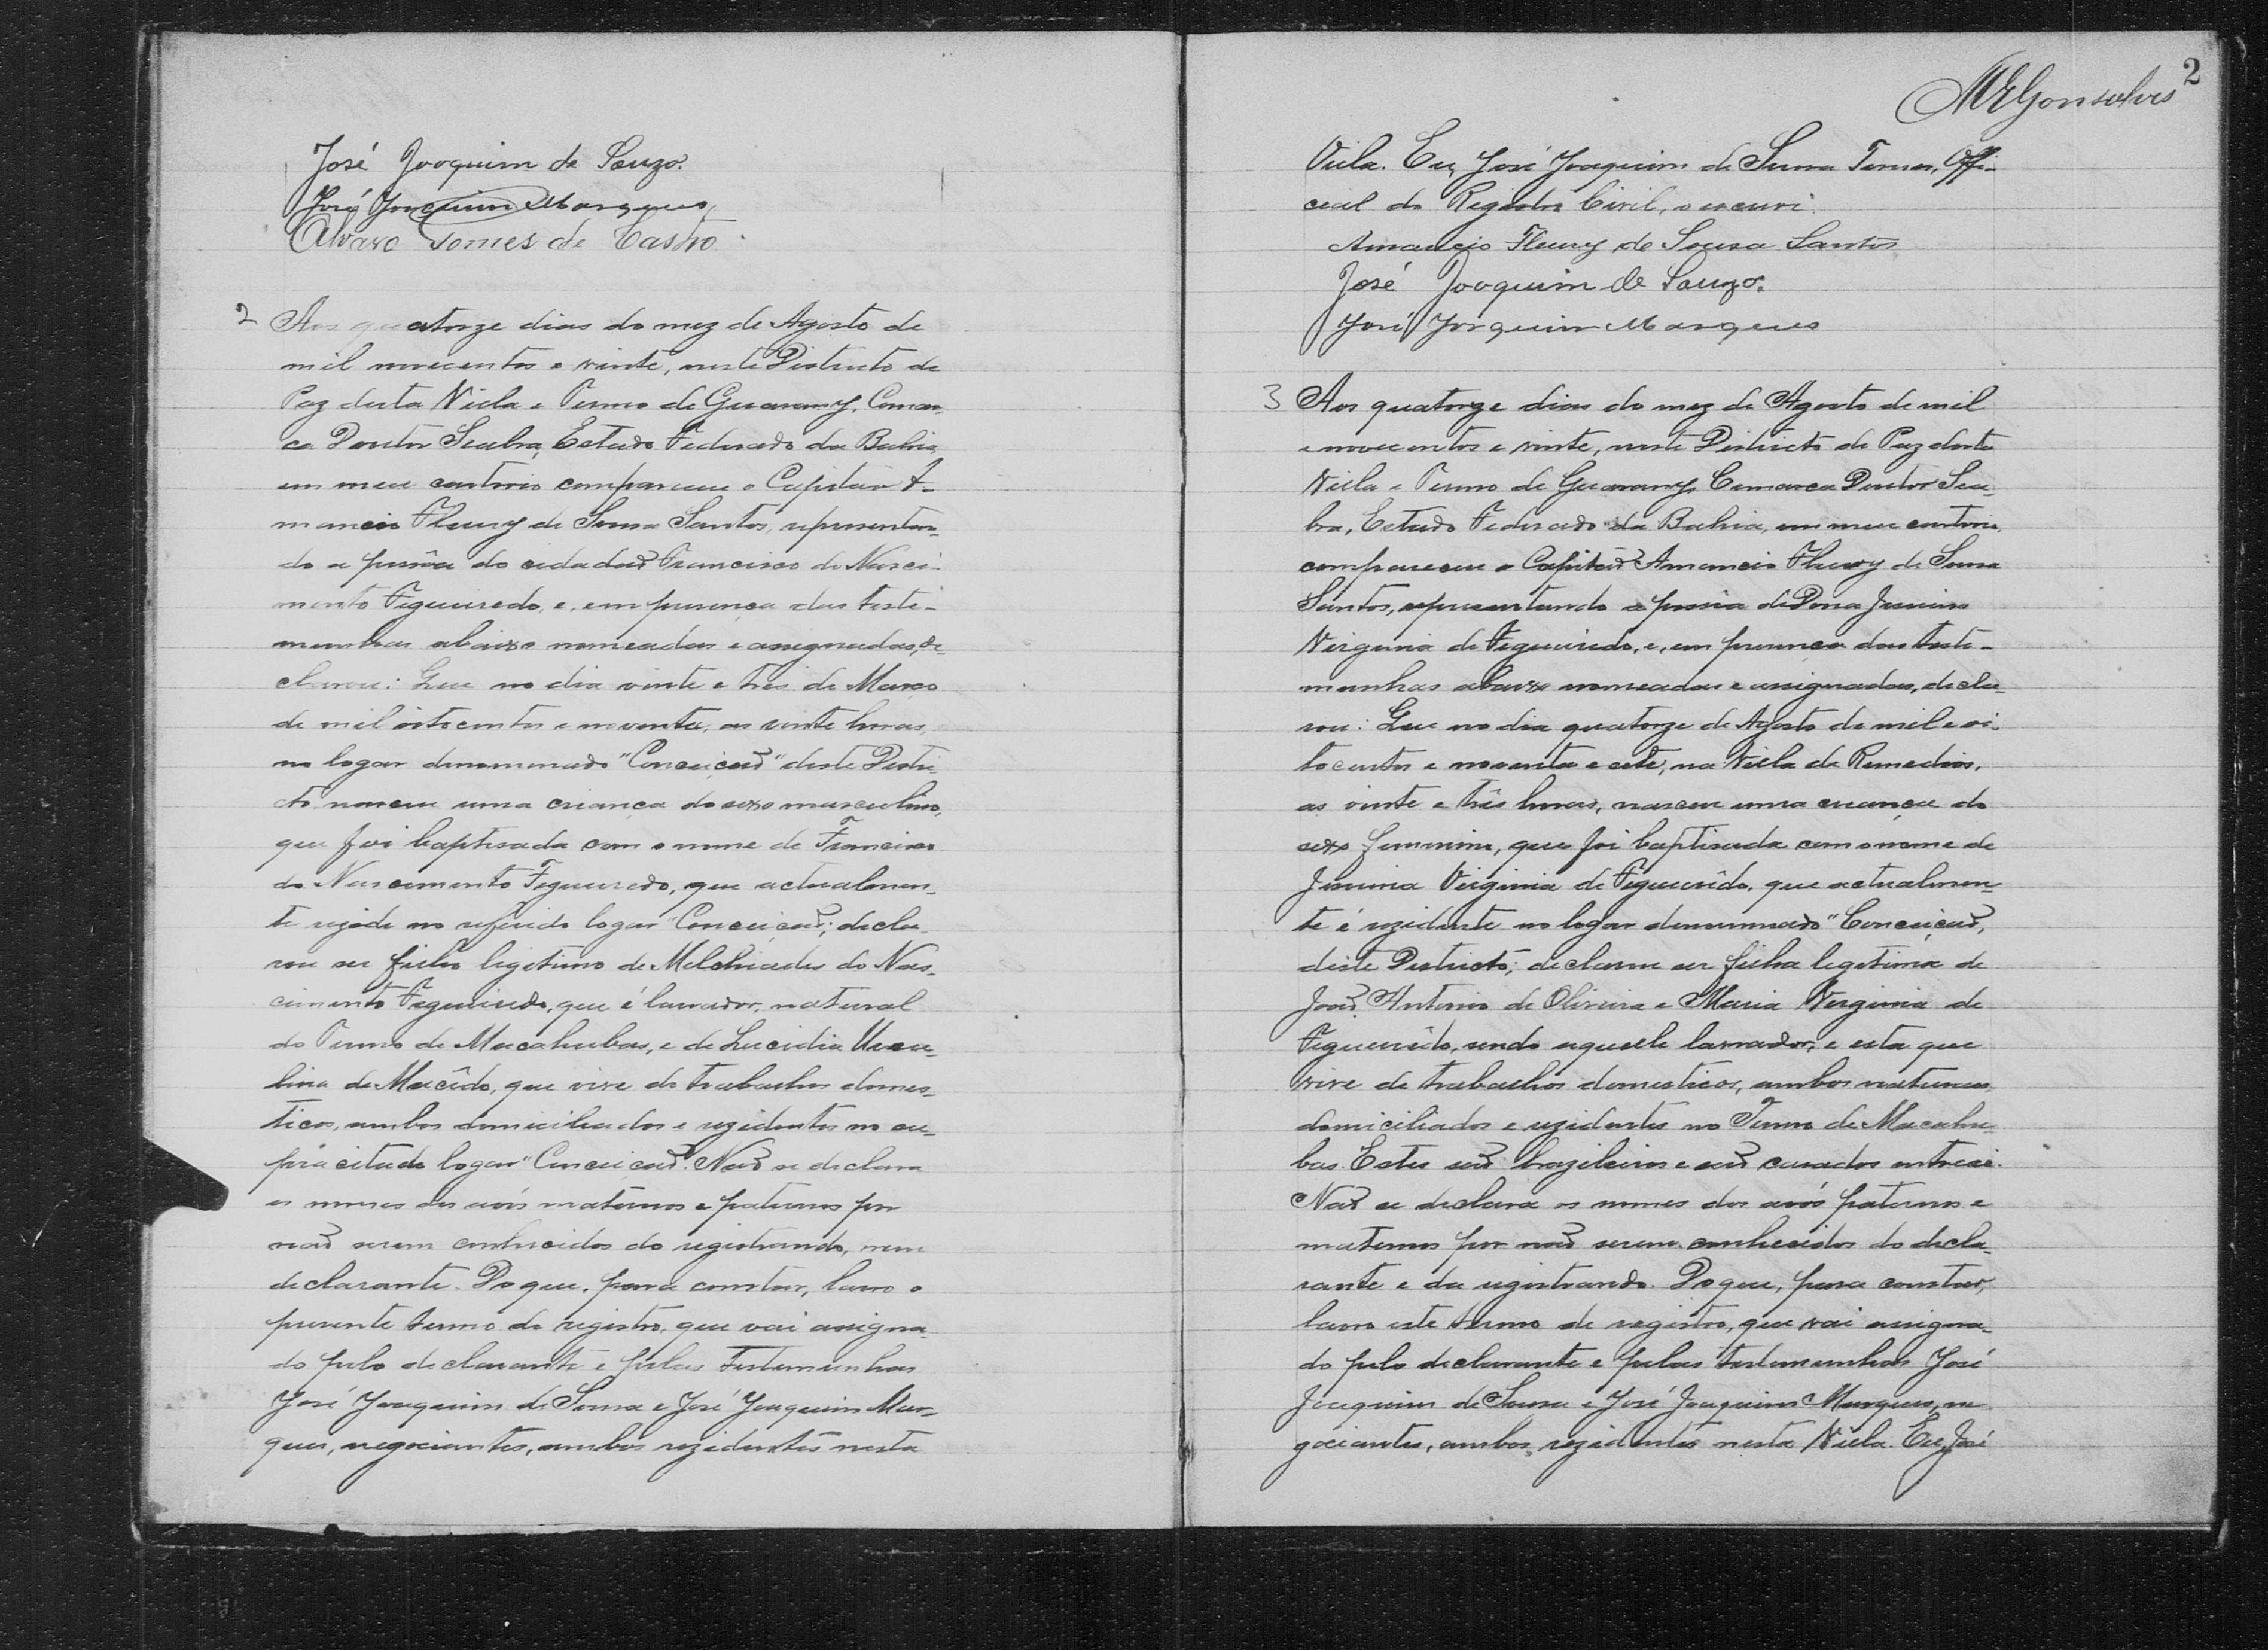 José Joaquim de Souzo.
José Joaquim Marques
Alvaro Gomes de Castro.
2 Aos quatorze dias do mez de Agosto de
mil novecentos e vinte, neste Districto de
Paz desta Villa e Termo de Guarany, Comar-
ca Doutor Seabra, Estado Federado da Bahia,
em meu cartorio compareceu o Capitão A-
mancio Fleury de Sousa Santos, representan-
do a pessôa do cidadão Francisco do Nasci-
mento Figueiredo, e, em presença das teste-
munhas abaixo nomeadas e assignadas, de-
clarou: Que no dia vinte e três de Março
de mil oitocentos e noventa, as vinte horas,
no logar denominado "Conceição" deste Distri-
cto nasceu uma criança do sexo masculino,
que foi baptisada com o nome de Francisco
do Nascimento Figueiredo, que actualmen-
te rezide no referido logar "Conceição"; decla-
rou ser filho ligitimo de Melchiades do Nas-
cimento Figueiredo, que é lavrador, natural
do Termo de Macahubas, e de Lucidia
de Macêdo, que vive de trabalhos domes-
ticos, ambos domiciliados e rezidentes no su-
pracitado logar "Conceição". Não se declara
os nomes dos avós maternos e paternos por
não serem conhecidos do registrando, nem
declarante. Do que, para constar, lavro o
presente termo de registro, que vai assigna-
do pelo declarante e pelas testemunhas
José Joaquim de Sousa e José Joaquim Mar-
ques, negociantes, ambos rezidentes nesta
2
MEGonsalves
Villa. Eu, José Joaquim de Offi-
cial do Registro Civil, o escrevi.
Amancio Fleury de Sousa Santos
José Joaquim de Souzo.
José Joaquim Marques
3 Aos quatorze dias do mez de Agosto de mil
e novecentos e vinte, neste Districto de Paz desta
Villa e Termo de Guarany, Comarca Doutor Sea-
bra, Estado Federado da Bahia, em meu cartorio
compareceu o Capitão Amancio Fleury de Sousa
Santos, representando a pessôa de Dona Jesuina
Virginia de Figueirêdo, e, em presença das teste-
munhas abaixo nomeadas e assignadas, decla-
rou: Que no dia quatorze de Agosto de mil e oi-
tocentos e noventa e sete, na Villa de Remedios,
as vinte e três horas, nasceu uma criança do
sexo feminino, que foi baptisada com o nome de
Jesuina Virginia de Figueirêdo, que actualmen-
te é rezidente no logar denominado "Conceição",
deste Districto; declarou ser filha legitima de
João Antonio de Oliveira e Maria Virginia de
Figueirêdo, sendo aquelle lavrador, e esta que
vive de trabalhos domesticos, ambos naturaes
domiciliados e rezidentes no Termo de Macahu-
bas. Estes são brazileiros e são casados entre si.
Não se declara os nomes dos avós paternos e
maternos por não serem conhecidos do decla-
rante e da registranda. Do que, para constar,
lavro este termo de registro, que vai assigna-
do pelo declarante e pelas testemunhas José
Joaquim de Sousa e José Joaquim Marques, ne-
gociantes, ambos rezidentes nesta Villa. Eu, José